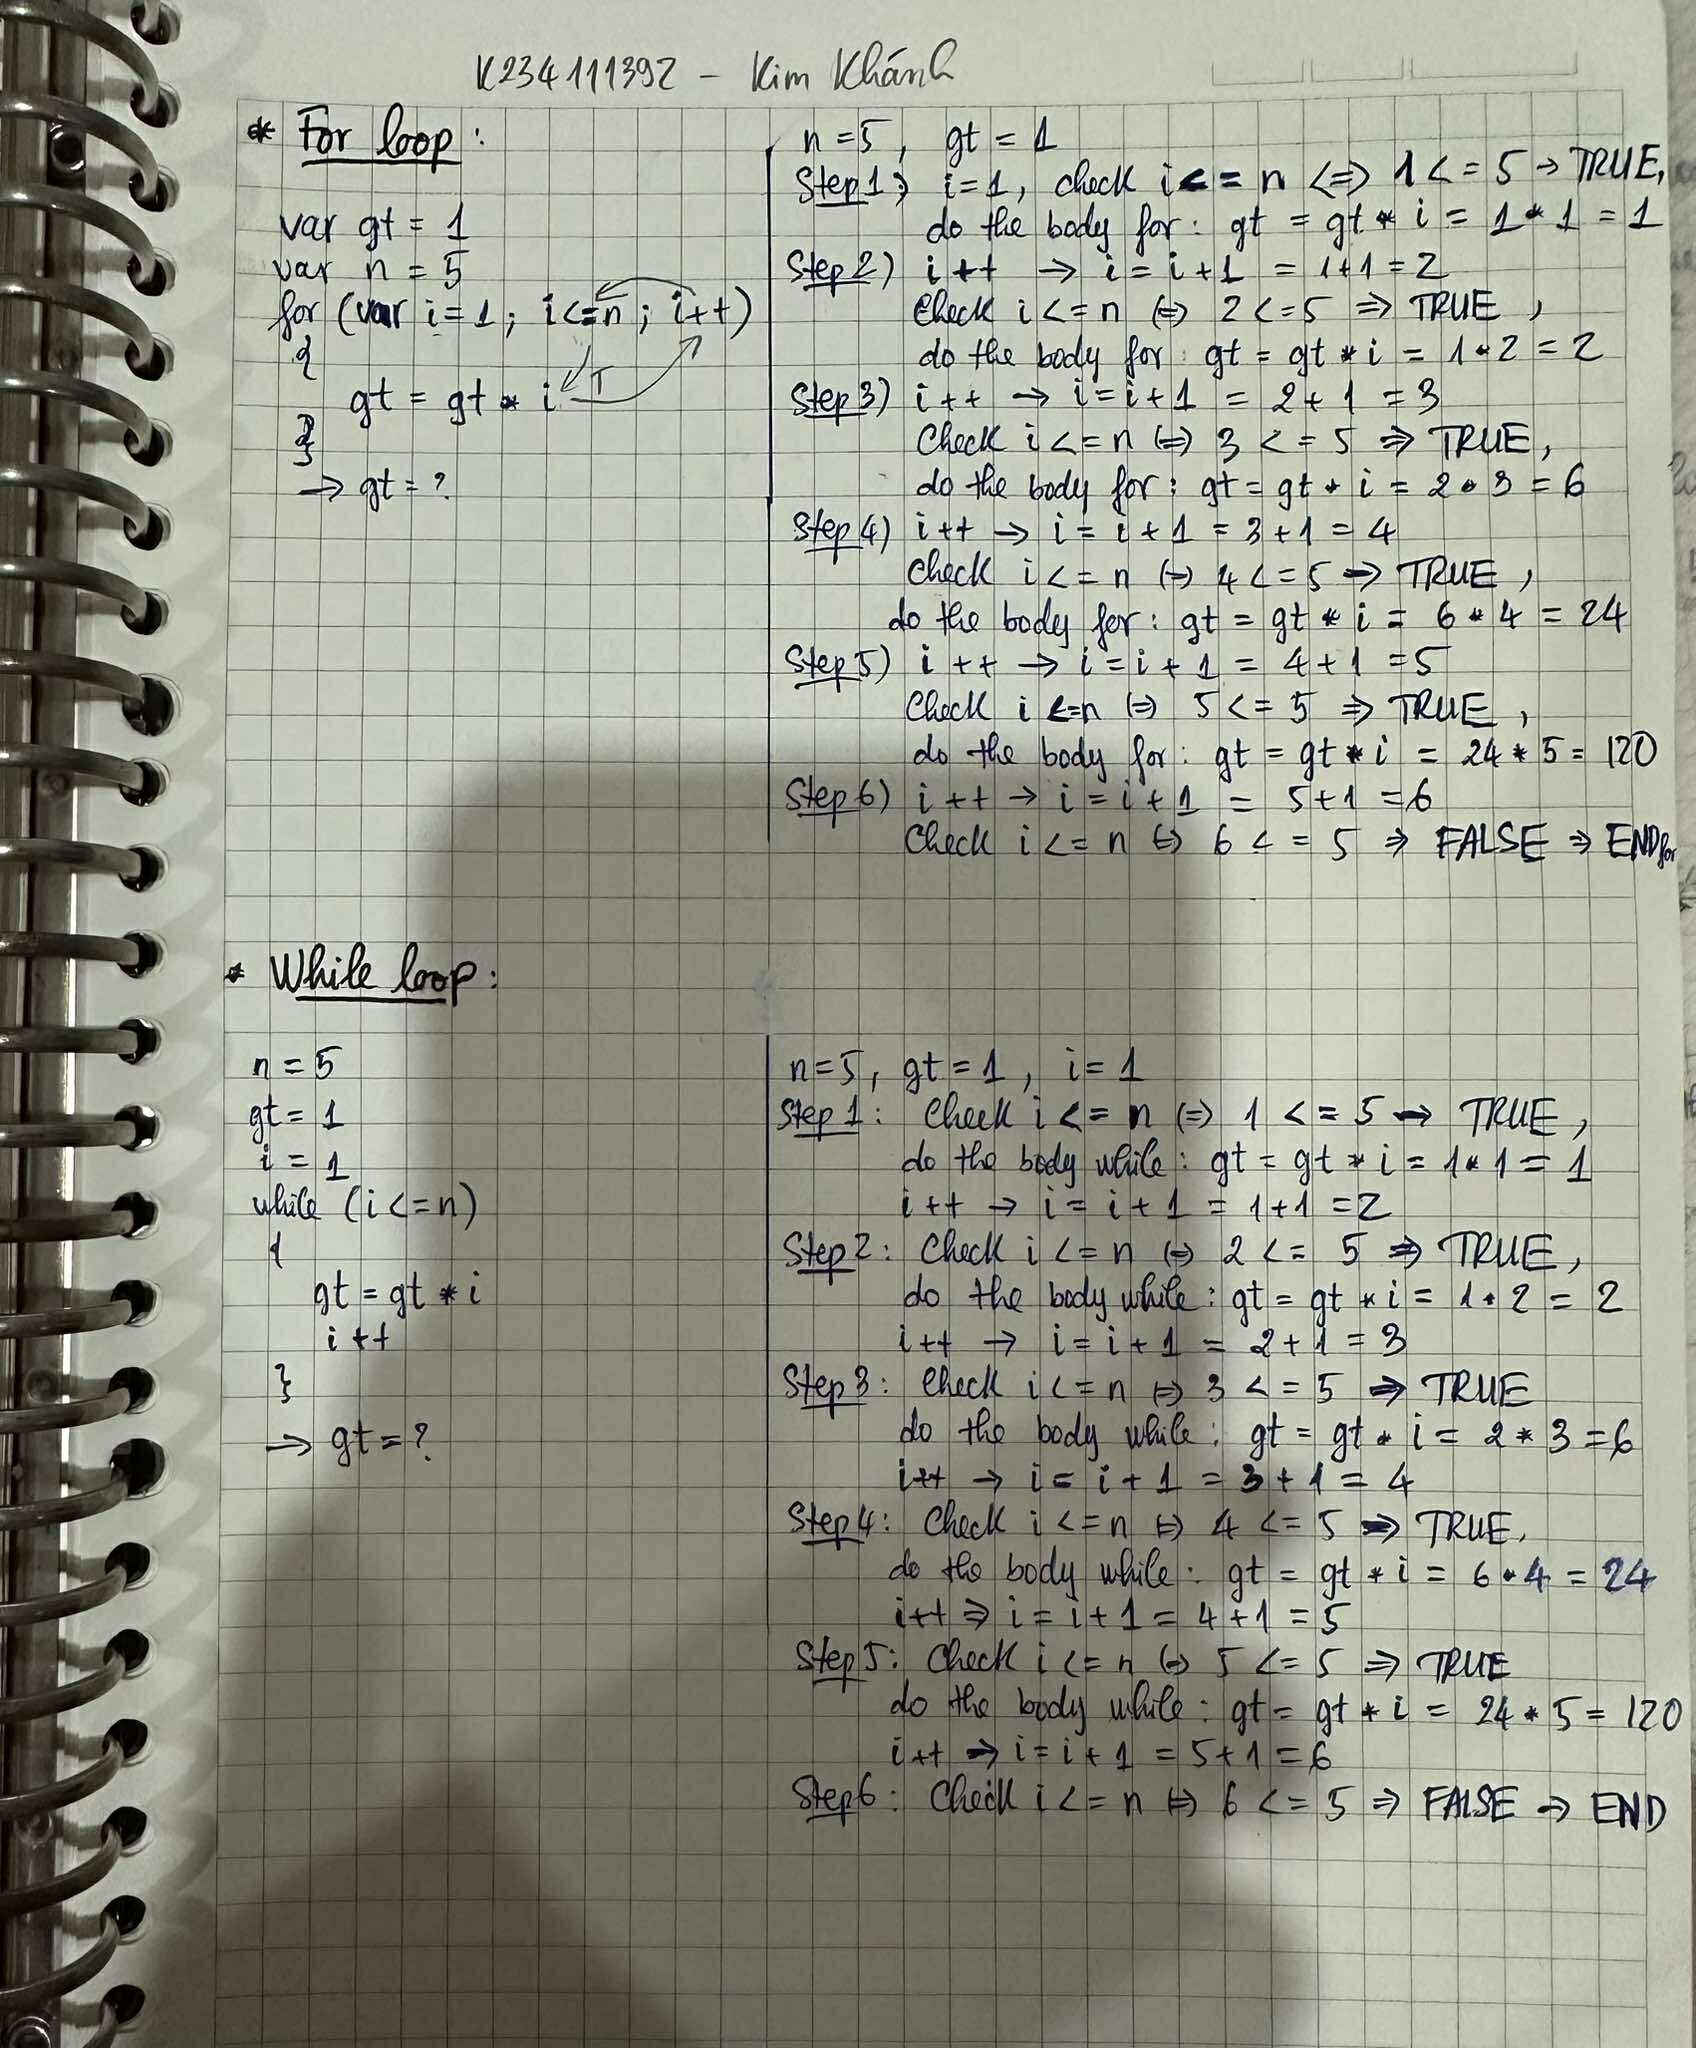 K234111392 - Kim Khánh
* For loop:
var gt = 1
var n = 5
for (var i=1; i<=n; i++)
{
gt = gt * i
T
}
→ gt = ?
n=5, gt = 1
Step 1) i=1, check i<=n <=> 1<=5 → TRUE,
do the body for: gt = gt * i = 1*1 = 1
Step 2) i++ → i=i+1 = 1+1=2
Check i<=n <=> 2<=5 => TRUE,
do the body for: gt = gt * i = 1*2 = 2
Step 3) i++ → i=i+1 = 2+1 = 3
Check i<=n <=> 3<=5 => TRUE,
do the body for: gt = gt * i = 2*3 = 6
Step 4) i++ → i=i+1 = 3+1 = 4
Check i<=n <=> 4<=5 → TRUE,
do the body for: gt = gt * i = 6*4 = 24
Step 5) i++ → i=i+1 = 4+1 = 5
Check i<=n <=> 5<=5 => TRUE,
do the body for: gt = gt * i = 24*5 = 120
Step 6) i++ → i=i+1 = 5+1 = 6
Check i<=n <=> 6<=5 => FALSE => END for
* While loop:
n = 5
gt = 1
i = 1
while (i<=n)
{
gt = gt * i
i++
}
→ gt = ?
n=5, gt=1, i=1
Step 1: Check i<=n <=> 1<=5 → TRUE,
do the body while: gt = gt * i = 1*1 = 1
i++ → i=i+1 = 1+1 = 2
Step 2: Check i<=n <=> 2<=5 => TRUE,
do the body while: gt = gt * i = 1*2 = 2
i++ → i=i+1 = 2+1 = 3
Step 3: Check i<=n <=> 3<=5 => TRUE
do the body while: gt = gt * i = 2*3 = 6
i++ → i=i+1 = 3+1 = 4
Step 4: Check i<=n <=> 4<=5 => TRUE.
do the body while: gt = gt * i = 6*4 = 24
i++ => i=i+1 = 4+1 = 5
Step 5: Check i<=n <=> 5<=5 => TRUE
do the body while: gt = gt * i = 24*5 = 120
i++ → i=i+1 = 5+1 = 6
Step 6: Check i<=n <=> 6<=5 => FALSE → END